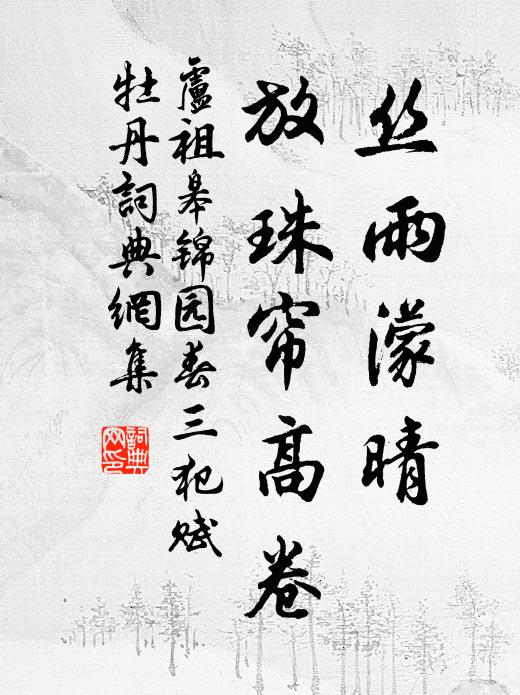 丝雨濛晴
放珠帘高卷
盧祖皋锦园春三犯赋
牡丹詞典網集
詞典网印